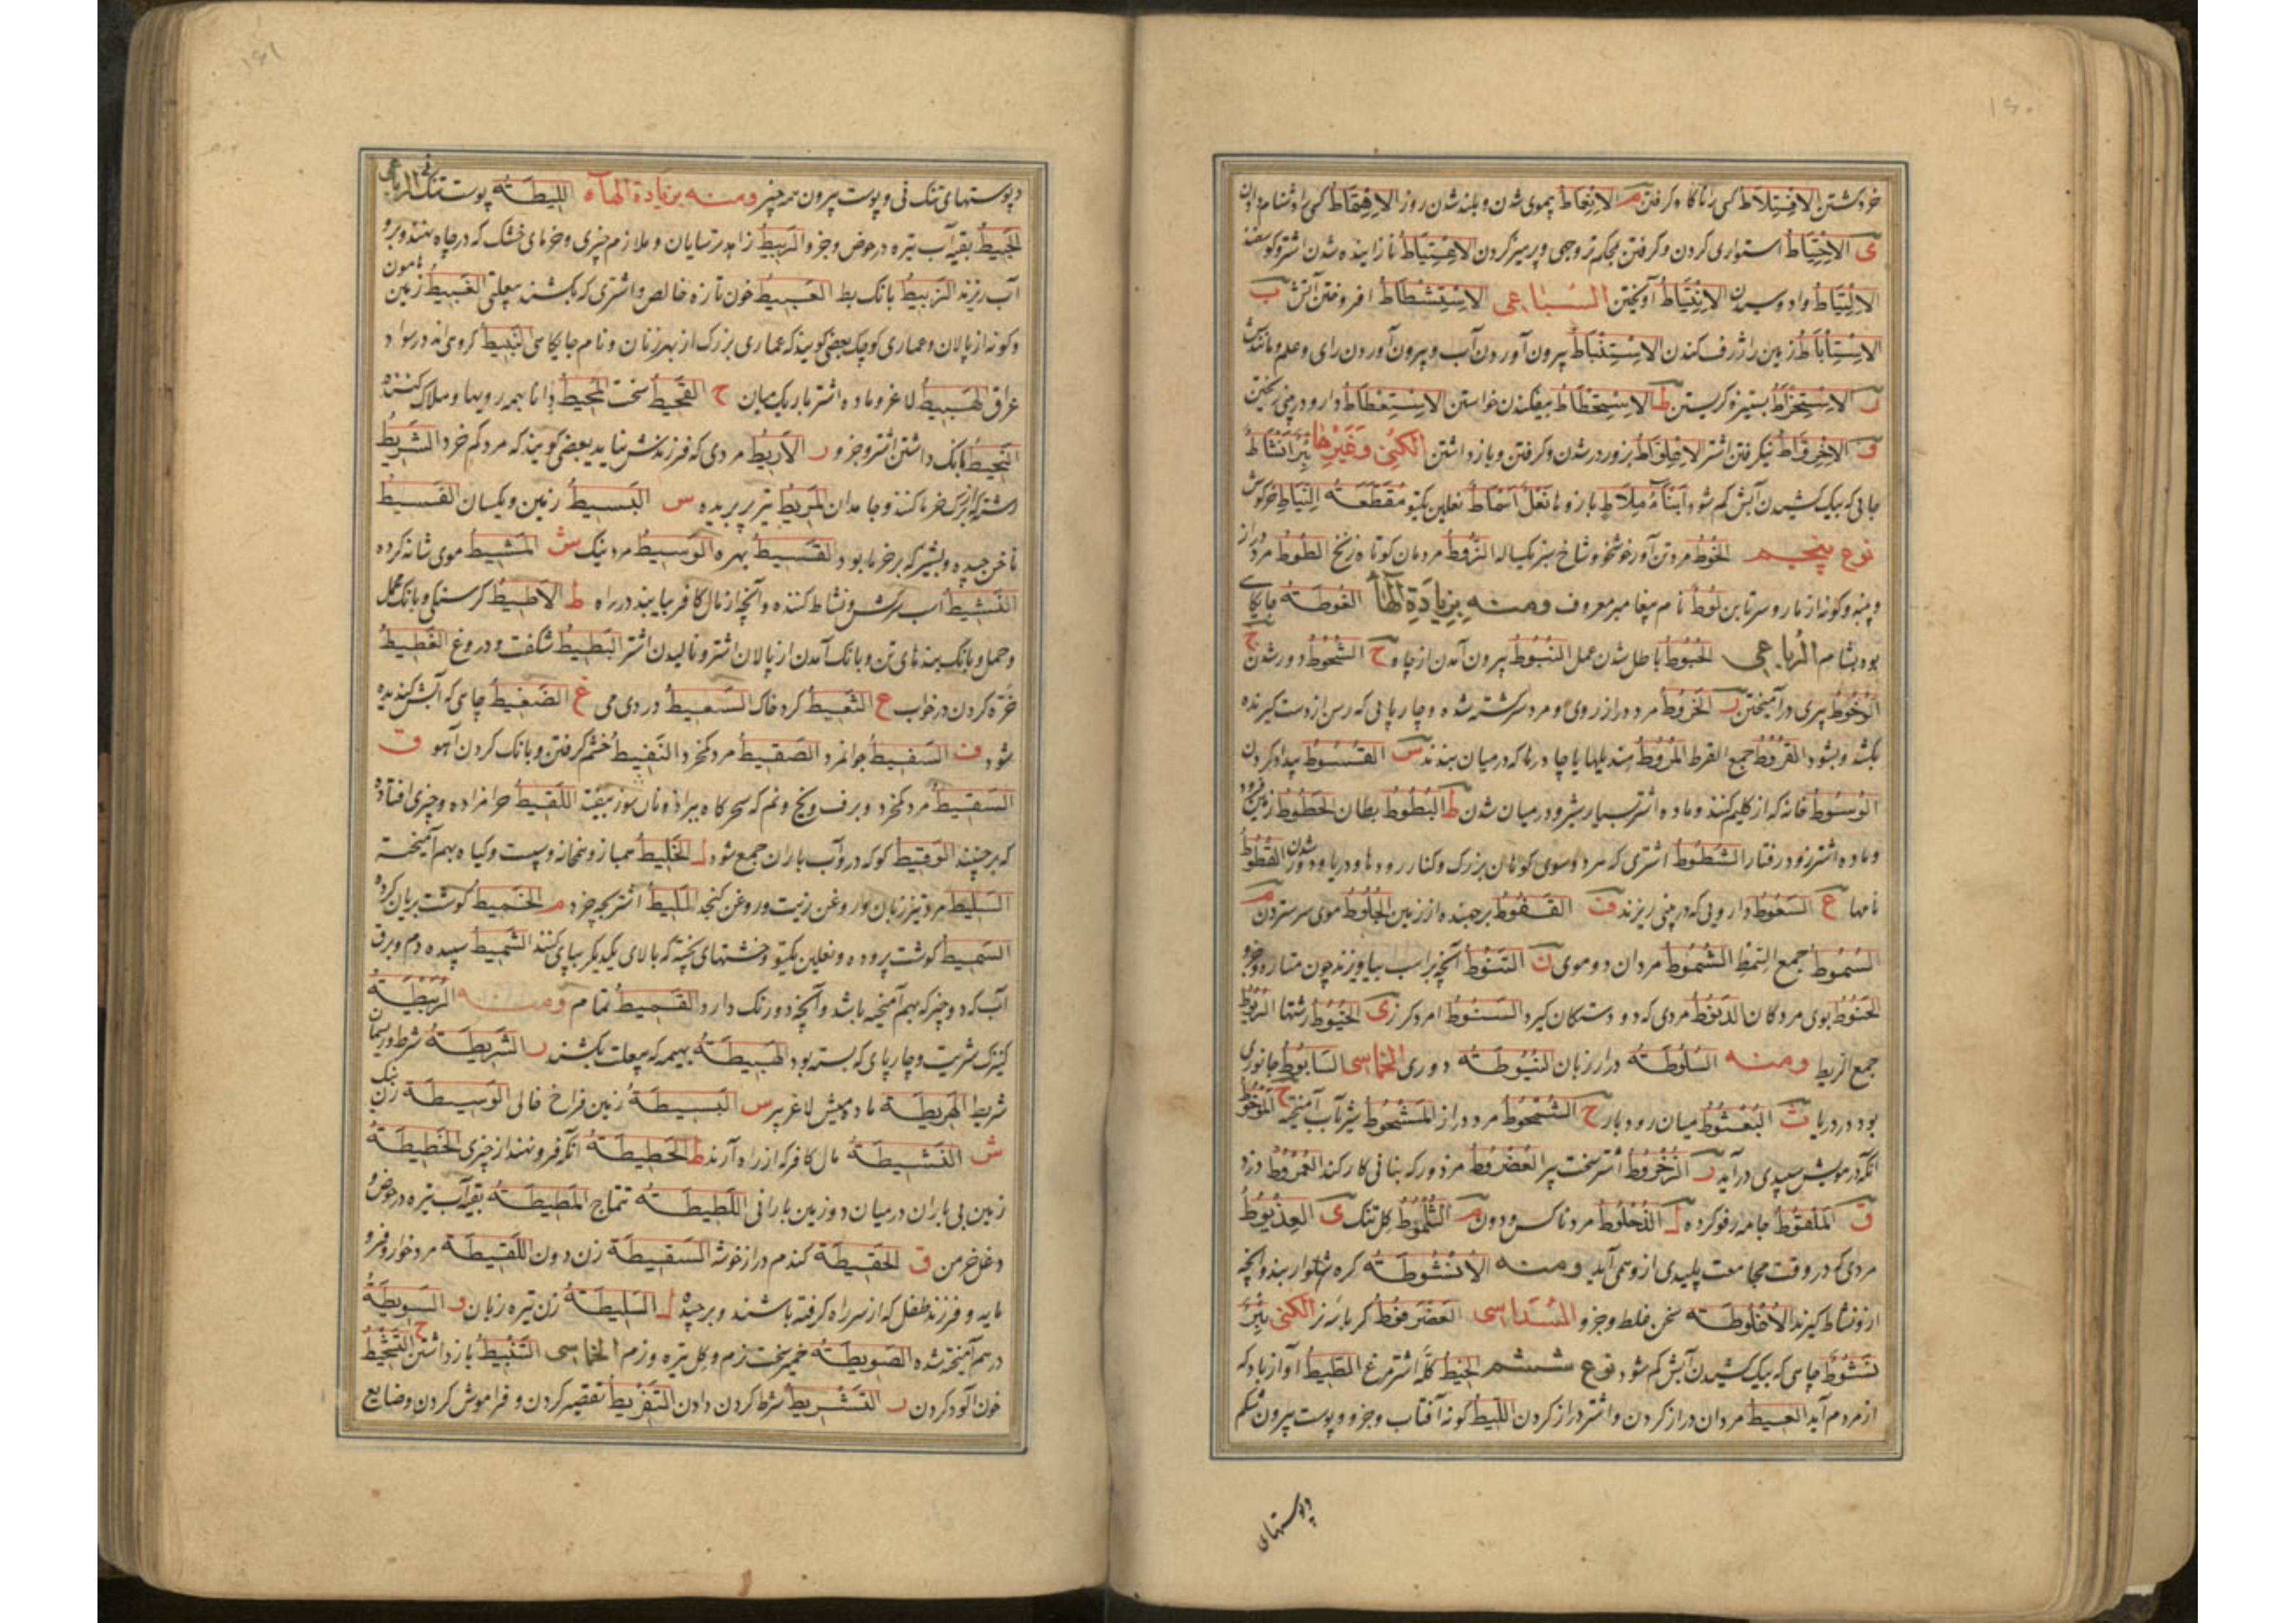 خرد کشتن الافتلاط کسی را ناکاه کرفتن م الانغاط بموی شدن و بلند شدن روز الاهتماط کسی را دشنام دادن
ی الاحتیاط استواری کردن و کرفتن محکم تر وجهی و پرهیز کردن الاعتیاط نازاینده شدن اشتر و کوسفند
الالتیاط وادوسیدن الانتیاط آویختن السباعی الاستشطاط افروختن آتش ب
زمین را ژرف کندن الاستنباط بیرون آوردن آب و بیرون آوردن رای و علم و مانند آن
ر الاستخراط بستیزه کریستن ط الاستحطاط بیفکندن خواستن الاستعطاط دارو در بینی ریختن
ف نیکرفتن اشتر الاعلواط بزور در شدن و کرفتن و باز داشتن الکنی وغیرها بئر انشاط
چاهی که بیک کشیدن آبش کم شود ابنا ملاط بازوها نعل اسماط نعلین یکتو مقطعة النیاط خرکوش
نوع پنجم الخوط مرد تن آور خوشخو و شاخ سبز یکساله الزوط مردمان کوتاه زنخ الطوط مرد دراز
و پنبه و کونه از مار و سرتابن لوط نام پیغامبر معروف ومنه بزیادة الهآء الغوطة جایکاهی
بود بشام الرباعی الحبوط باطل شدن عمل النبوط بیرون آمدن از چاه ح الشحوط دور شدن خ
الوخوط پیری درآمیختن ر الخروط مرد دراز روی و مرد سرکشته شده و چارپایی که رسن از دست کیرنده
بکشد و بشود القروط جمع القرط المروط که در میان بندند س القسوط بیداد کردن
الوسوط خانه که از کلیم کنند و ماده اشتر بسیار شیر و در میان شدن ط البطوط بطان الحطوط زمین فرود
و ماده اشتر زود رفتار الشطوط اشتری که هر دو سوی کوهان بزرک و کنار رودها و دریا و دور شدن القطوط
نامها ع السعوط دارویی که در بینی ریزند ف القفوط برجسته از زمین الجلوط موی سر ستردن م
السموط جمع السمط الشموط مردان دوموی ن التنوط آنچه بر اسب بیاویزند چون مناره و جزو
الحنوط بوی مردکان الذیوط مردی که دو دستکان کیرد السنوط امرد کرز ی الخیوط رشتها الریوط
جمع الریط ومنه السلوطة دراز زبان النیوطة دوری الخماسی السابوط جانوری
بود در دریا ث البعثوط میان رودبار ح الشمحوط مرد دراز المشحوط شیر بآب آمیخته خ الموخوط
آنکه در مویش سپیدی درآید ر الزخروط اشتر سخت پیر العضروط مزدور که بنانی کار کند العمروط دزد
ق الملفوط جامه رفو کرده ل الذعلوط مرد ناکس و دون م الثلموط کل تنک ی العذیوط
مردی که در وقت مجامعت پلیدی ازو همی آید ومنه الانشوطة کره شلوار بند و آنچه
ازو نشاط کیرند الاغلوطة سخن غلط و جزو السداسی العضرفوط کرباسه نر الکنی بئر
نشوط چاهی که بیک کشیدن آبش کم شود نوع ششم الخیط کله اشتر مرغ الظیط آواز باد که
از مردم آید العیط مردان دراز کردن و اشتر دراز کردن اللیط کونه آفتاب و جزو و پوست بیرون شکم
وپوستهای
وپوستهای تنک نی و پوست بیرون همه چیز ومنه بزیادة الهآء اللیطة پوست تنک نی الرباعی
الخبیط بقیه آب تیره در حوض و جزو الربیط زاهد ترسایان و ملازم چیزی و خرمای خشک که در چاه نهند و برو
آب ریزند الزبیط بانک بط العبیط خون تازه خالص و اشتری که بکشند بی علتی الغبیط زمین هامون
و کونه از پالان و عماری کوچک بعضی کویند که عماری بزرک از بهر زنان و نام جایکاهی النبیط کروهی اند در سواد
عراق الهبیط لاغر و ماده اشتر باریک میان ح القحیط سخت المحیط دانا بهمه رویها و هلاک کننده
النحیط بانک داشتن اشتر و جزو ر الاریط مردی که فرزندش نیاید بعضی کویند که مرد کم خرد الشریط
رشته که از برک خرما کنند و جامدان المریط تیر پر بریده س البسیط زمین و یکسان الفسیط
ناخن چیده و پشتیزه که بر خرما بود القسیط بهره الوسیط مرد نیک ش المشیط موی شانه کرده
النشیط اسب سرکش و نشاط کننده و آنچه از مال کافر بیابند در راه ط الاطیط کرسنکی و بانک محمل
و حمل و بانک بندهای تن و بانک آمدن از پالان اشتر و نالیدن اشتر البطیط شکفت و دروغ الغطیط
خره کردن در خواب ع الثعیط کرد خاک السعیط دردی می غ الضغیط چاهی که آبش کندیده
شود ف السفیط جوانمرد الضفیط مرد کم خرد النفیط خشم کرفتن و بانک کردن آهو ق
السقیط مرد کم خرد و برف و یخ و نم که سحرکاه بیفتد اللقیط حرامزاده و چیزی افتاده
که برچینند الوقیط کوی که درو آب باران جمع شود ل الخلیط همباز و همخانه و پست و کیاه بهم آمیخته
السلیط مرد تیز زبان و روغن زیت و روغن کنجد الملیط اشتر بچه خرد م الخمیط کوشت بریان کرده
السمیط کوشت پروده و نعلین یکتو و خشتهای پخته که بالای یکدیکر بپای کنند الشمیط سپیده دم و برق
آب که دو چیز که بهم آمیخته باشد و آنچه دو رنک دارد القمیط تمام ومنه الربیطة
کنیزک سریت و چارپای که بسته بود العبیطة بهیمه که بی علت بکشند ر الشریطة شرط و ریسمان
شریط الهریطة ماده میش لاغر پیر س البسیطة زمین فراخ خالی الوسیطة زن نیک
ش النشیطة مال کافر که از راه آرند ط الحطیطة آنکه فرو نهند از چیزی الخطیطة
زمین بی باران در میان دو زمین بارانی اللطیطة تتماج المطیطة بقیه آب تیره در حوض و
دغل خرمن ق الحقیطة کندم دراز خوشه السقیطة زن دون اللقیطة مرد خوار و فرو
مایه و فرزند طفل که از سر راه کرفته باشند و برچیده ل السلیطة زن تیره زبان و السویطة
درهم آمیخته شده الضویطة خمیر سخت نرم و کل تیره و نرم الخماسی التثبیط باز داشتن ح التشحیط
خون آلود کردن ر التشریط شرط کردن دادن التفریط تقصیر کردن و فراموش کردن و ضایع